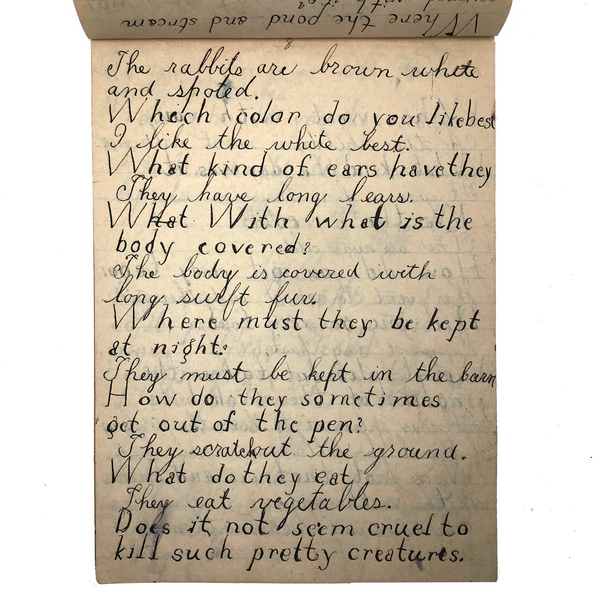 Where the pond and stream
8
The rabbits are brown white
and spoted.
Which color do you like best
I like the white best.
What kind of ears have they
They have long ears.
What With what is the
body covered?
The body is covered with
long surft fur.
Where must they be kept
at night?
They must be kept in the barn
How do they sometimes
get out of the pen?
They scratch out the ground.
What do they eat
They eat vegetables.
Does it not seem cruel to
kill such pretty creatures.